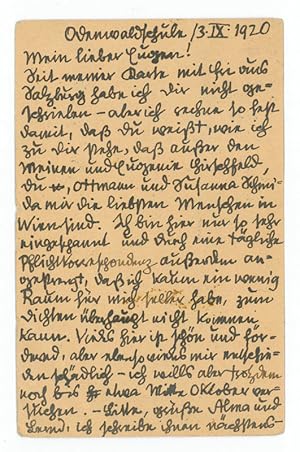 Odenwaldschule / 3. IX. 1920
Mein lieber Eugen!
Seit meiner Karte mit Ei aus
Salzburg habe ich dir nicht ge-
schrieben – aber ich rechne so fest
damit, daß du weißt, wie ich
zu dir stehe, daß außer den
Meinen und Eugenie Hirschfeld
du, Ottmann und Susanna Schmi-
da mir die liebsten Menschen in
Wien sind. Ich bin hier nur so sehr
eingespannt und durch eine tägliche
Pflichtkorrespondenz außerdem an-
gestrengt, daß ich kaum ein wenig
Raum für mich selber habe, zum
dichten überhaupt nicht kommen
kann. Vieles hier ist schön und för-
dernd, aber ebensovieles mir entschie-
den schädlich – ich wills aber trotzdem
noch bis etwa Mitte Oktober ver-
suchen. – Bitte, grüße Alma und
ich schreibe ihnen nächstens